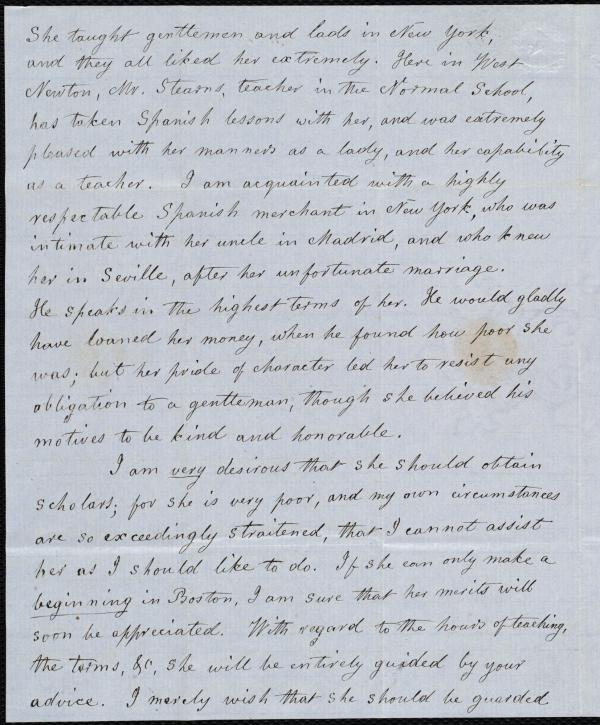 She taught gentlemen and lads in New York,
and they all liked her extremely. Here in West
Newton, Mr. Stearns, teacher in the Normal School,
has taken Spanish lessons with her, and was extremely
pleased with her manners as a lady, and her capability
as a teacher. I am acquainted with a highly
respectable Spanish merchant in New York, who was
intimate with her uncle in Madrid, and who knew
her in Seville, after her unfortunate marriage.
He speaks in the highest terms of her. He would gladly
have loaned her money, when he found how poor she
was; but her pride of character led her to resist any
obligation to a gentleman, though she believed his
motives to be kind and honorable.
I am very desirous that she should obtain
scholars; for she is very poor, and my own circumstances
are so exceedingly straitened, that I cannot assist
her as I should like to do. If she can only make a
beginning in Boston, I am sure that her merits will
soon be appreciated. With regard to the hours of teaching,
the terms, &c, she will be entirely guided by your
advice. I merely wish that she should be guarded